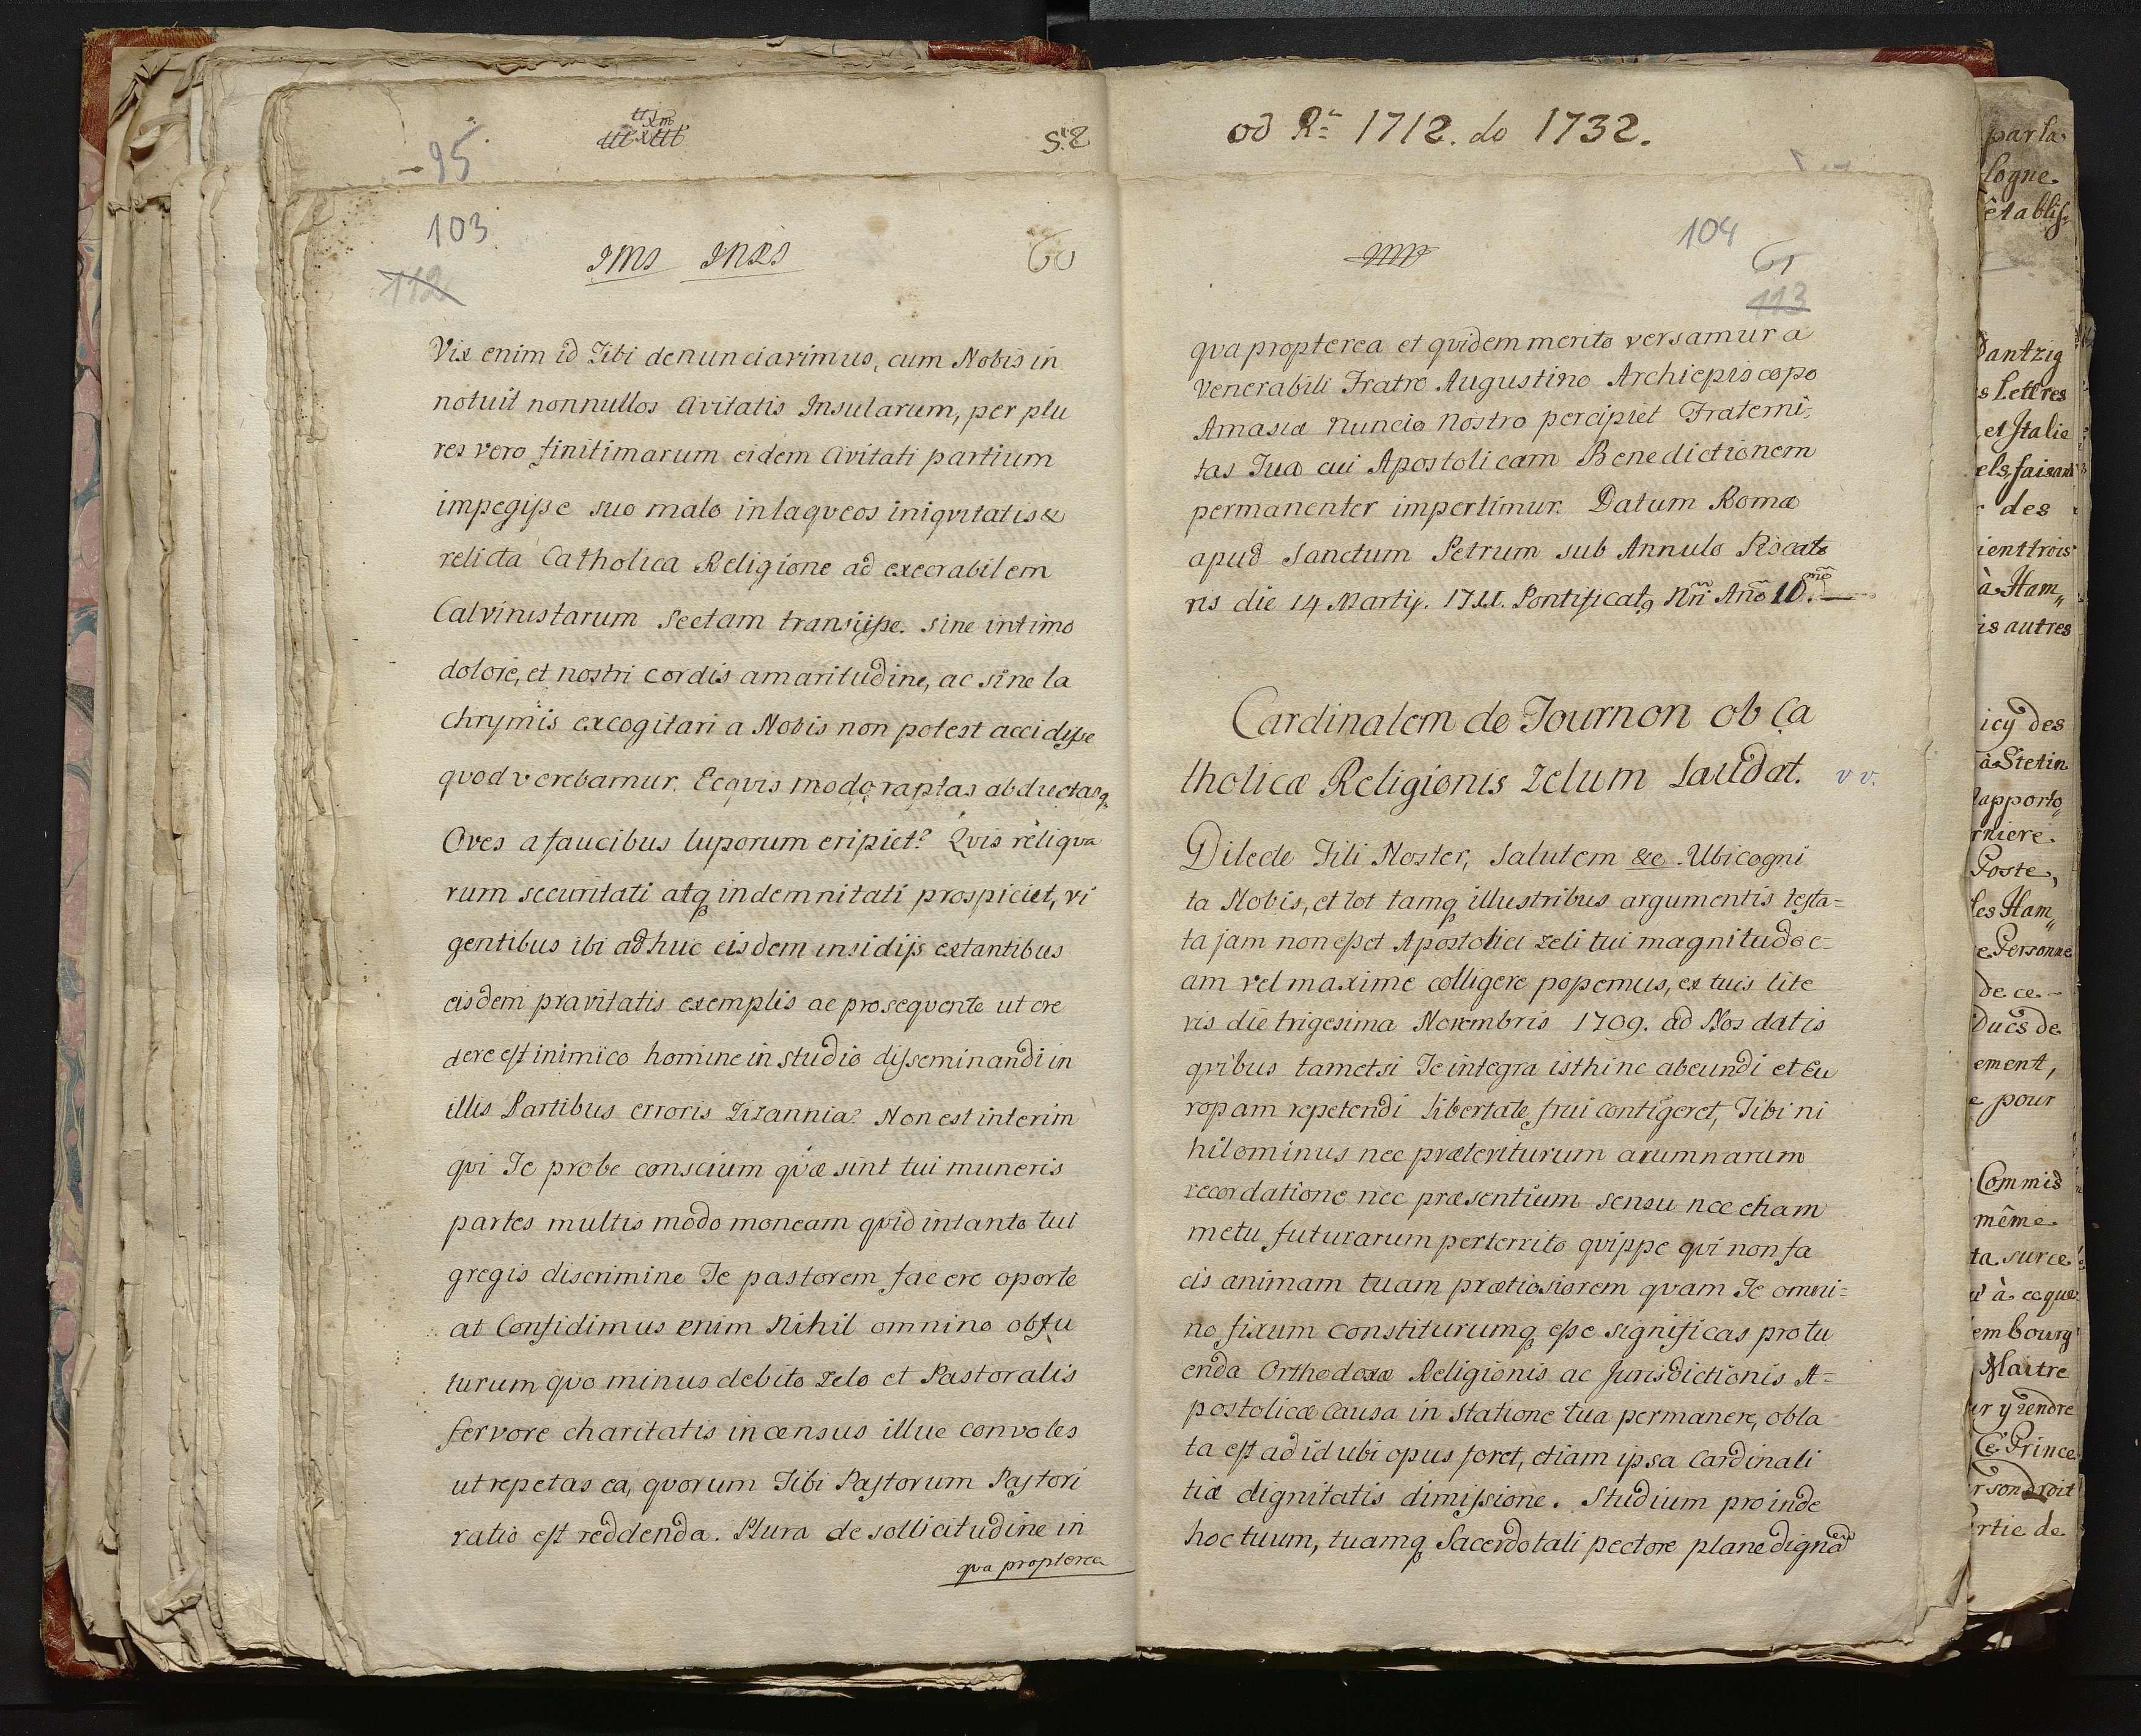 95
52
103
60
112
Vix enim id Tibi denunciavimus, cum Nobis in
notuit nonnullos Civitatis Insularum, per plu
res vero finitimarum eidem Civitati partium
impegisse suo malo in laqveos iniqvitatis &
relicta Catholica Religione ad execrabilem
Calvinistarum Sectam transiisse. Sine intimo
dolore, et nostri cordis amaritudine, ac sine la
chrymis excogitari a Nobis non potest accidisse
quod verebamur. Ecqvis modo raptas abductasq
Oves a faucibus luporum eripiet? Qvis reliqva
rum securitati atq indemnitati prospiciet, vi
gentibus ibi adhuc eisdem insidijs extantibus
eisdem pravitatis exemplis ac proseqvente ut cre
dere est inimico homine in studio disseminandi in
illis Partibus erroris Zizannia? Non est interim
qvi Te probe conscium qvæ sint tui muneris
partes multis modo moneam qvid in tanto tui
gregis discrimine Te pastorem facere oporte
at Confidimus enim Nihil omnino obfu
turum qvo minus debito zelo et Pastoralis
fervore charitatis incensus illuc convoles
ut repetas ea, qvorum Tibi Pastorum Pastori
ratio est reddenda. Plura de sollicitudine in
qva propterea
od R: 1712. do 1732.
104
61
113
qva propterea et qvidem merito versamur a
Venerabili Fratre Augustino Archiepiscopo
Amasiæ Nuncio Nostro percipiet Fraterni-
tas Tua cui Apostolicam Benedictionem
permanenter impertimur. Datum Romæ
apud Sanctum Petrum sub Annulo Piscato
ris die 14 Martij. 1711. Pontificatq Nri Ano 10.mo
Cardinalem de Tournon ob Ca
tholicæ Religionis zelum laudat. v v.
Dilecte Fili Noster, Salutem &c. Ubi cogni
ta Nobis, et tot tamq illustribus argumentis testa=
ta jam non esset Apostolici zeli tui magnitudo e=
am vel maxime colligere possemus, ex tuis lite
ris die trigesima Novembris 1709. ad Nos datis
qvibus tametsi Te integra isthinc abeundi et Eu
ropam repetendi libertate frui contigeret, Tibi ni
hilominus nec præteriturum ærumnarum
recordatione nec præsentium sensu nec etiam
metu futurarum perterrito qvippe qvi non fa
cis animam tuam prætiosiorem qvam Te omni=
no fixum constiturumq esse significas pro tu
enda Orthodoxæ Religionis ac Jurisdictionis A=
postolicæ causa in Statione tua permanere, obla
ta est ad id ubi opus foret, etiam ipsa Cardinali
tiæ dignitatis dimissione. Studium proinde
hoc tuum, tuamq Sacerdotali pectore plane dignam
par la
logne
êtablis
Dantzig
s Lettres
et Italie
els, faisant
des
ient trois
à Ham„
is autres
icy des
à Stetin
rapporto„
rniere.
Poste,
les Ham„
e Personne
de ce
Ducs de
ement,
e pour
Commis
même
ta sur ce
u' à ce que
embourg
Maitre
er y rendre
Ce Prince
r son droit
rtie de